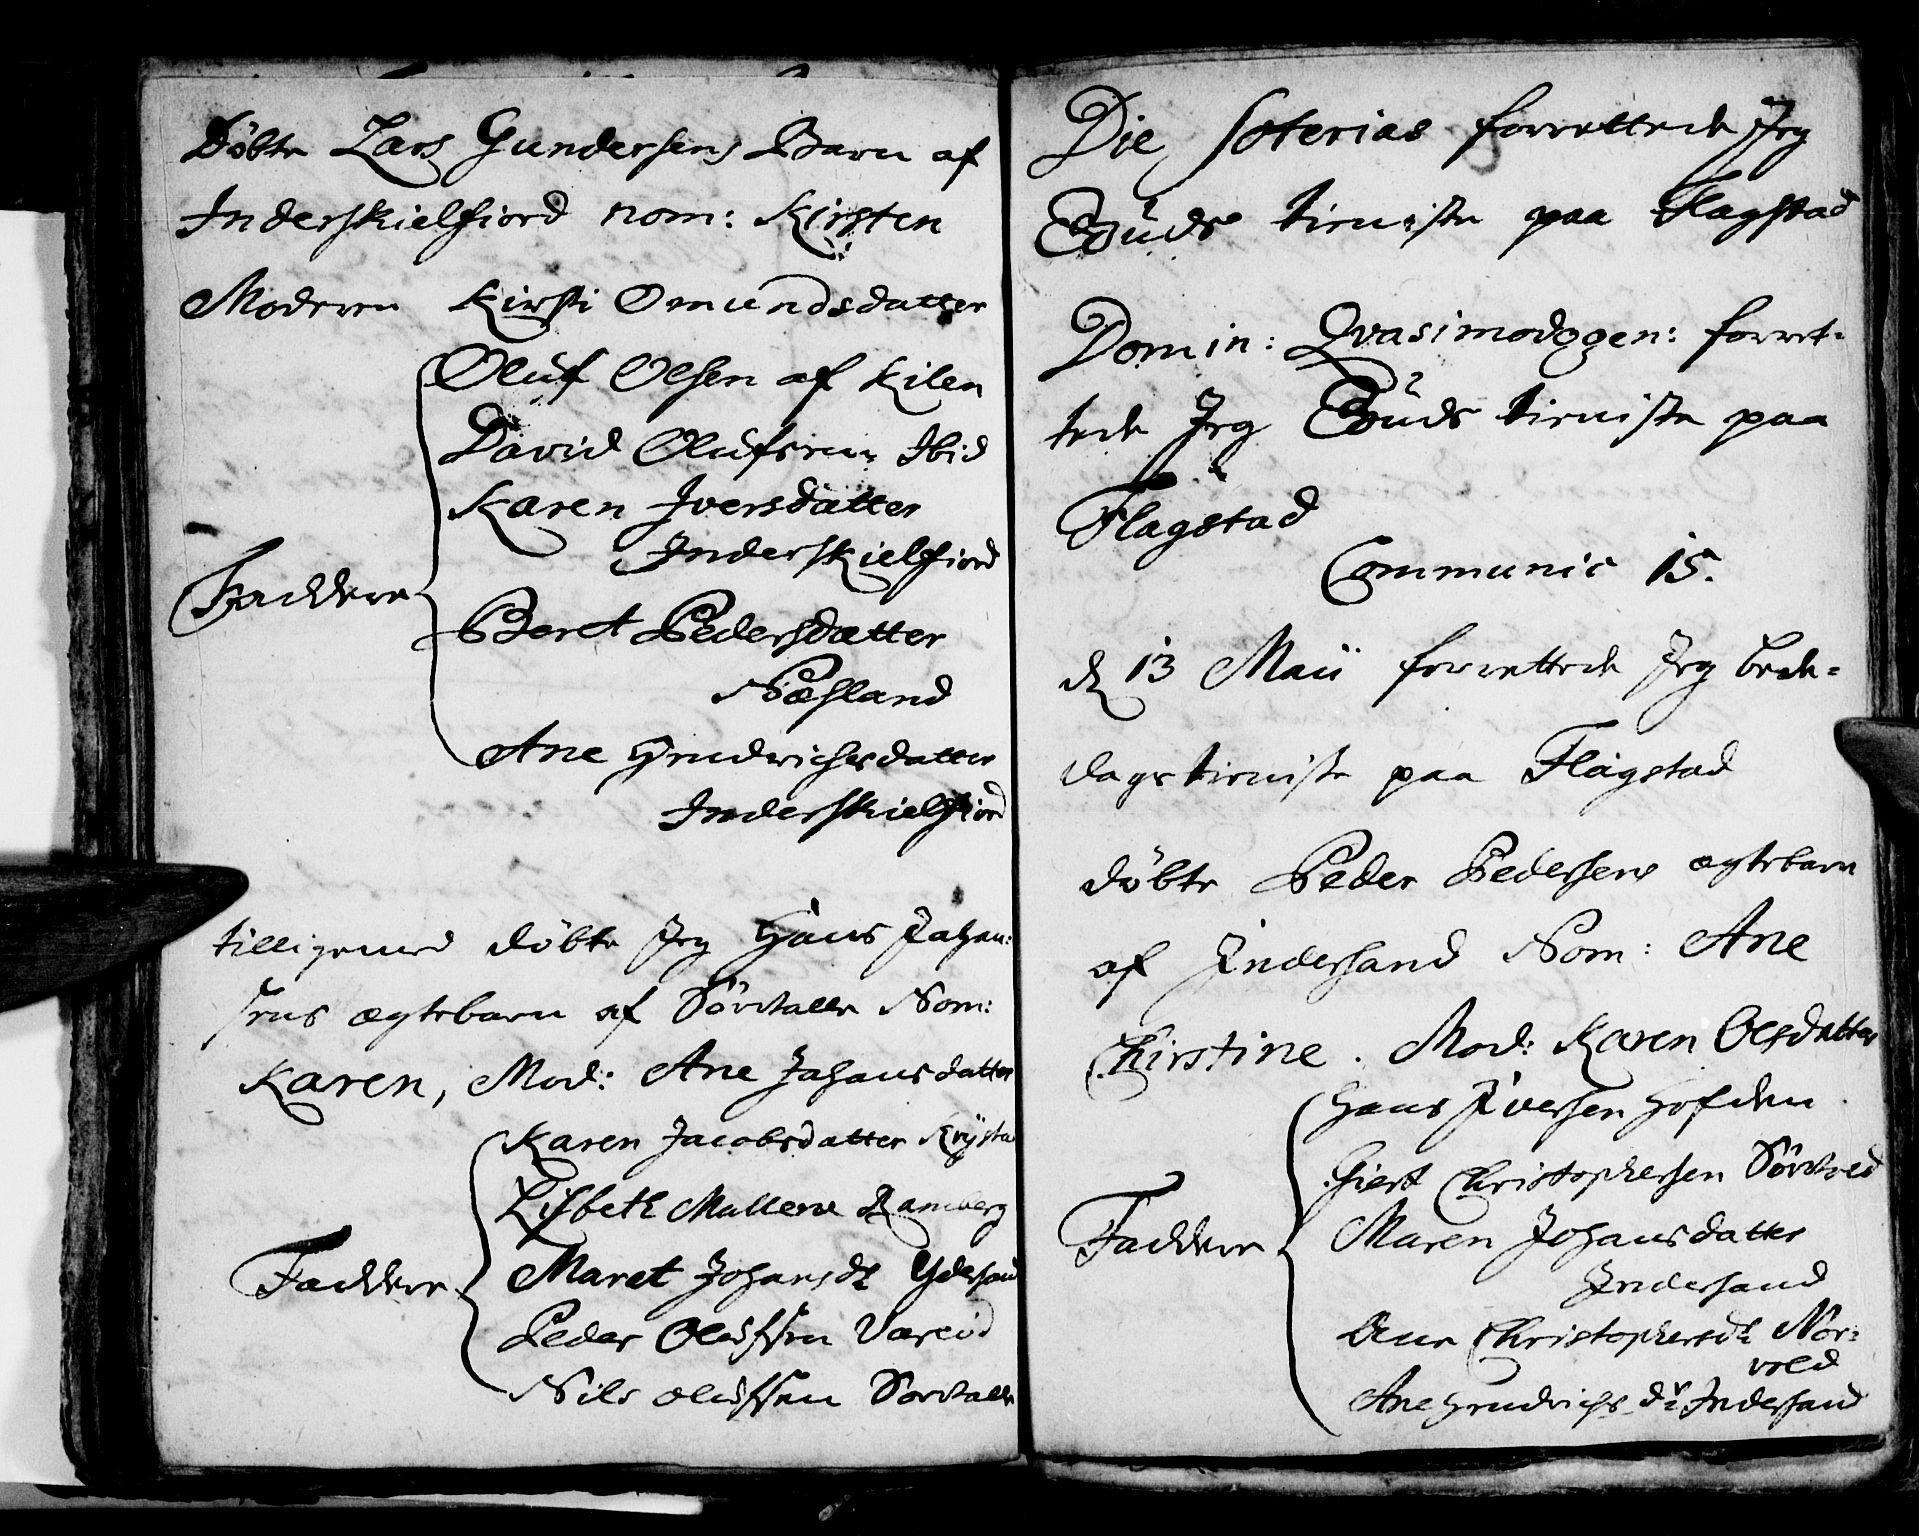 Döbte Lars Gundersens Barn af
Inderskielfiord nom: Kirsten
Moderen Kirsti Omundsdatter
Oluf Olsen af Kilen
David Olufsen Ibid
Karen Iversdatter
Inderskielfiord
Faddere
Beret Pedersdatter
Næsland
Ane Hendrichsdatter
Inderskielfiord
tilligemed döbte Jeg Hans Johan:
sens ægtebarn af Nom:
Karen, Mod: Ane Johansdatter
Karen Jacobsdatter
Lisbeth Mallene Ramberg
Faddere
Maret Johansdt Ydersand
Peder Olufssen Vareid
Nils Olufssen
Die Soterias forrettede Jeg
Guds tieniste paa Flagstad
Domin: Qvasimodogen: forret-
tede Jeg Guds tieniste paa
Flagstad
Communic 15.
d 13 Maii forrettede Jeg bede-
dags tieniste paa Flagstad
döbte Peder Pedersens ægtebarn
af Indersand Nom: Ane
Chirstine. Mod: Karen Olsdatter
Hans Iversen Hofden
Giert Christophersen
Faddere
Maren Johansdatter
Indersand
Ane Christophersdt Nor:
vold
Ane Hendrichs dt Indersand